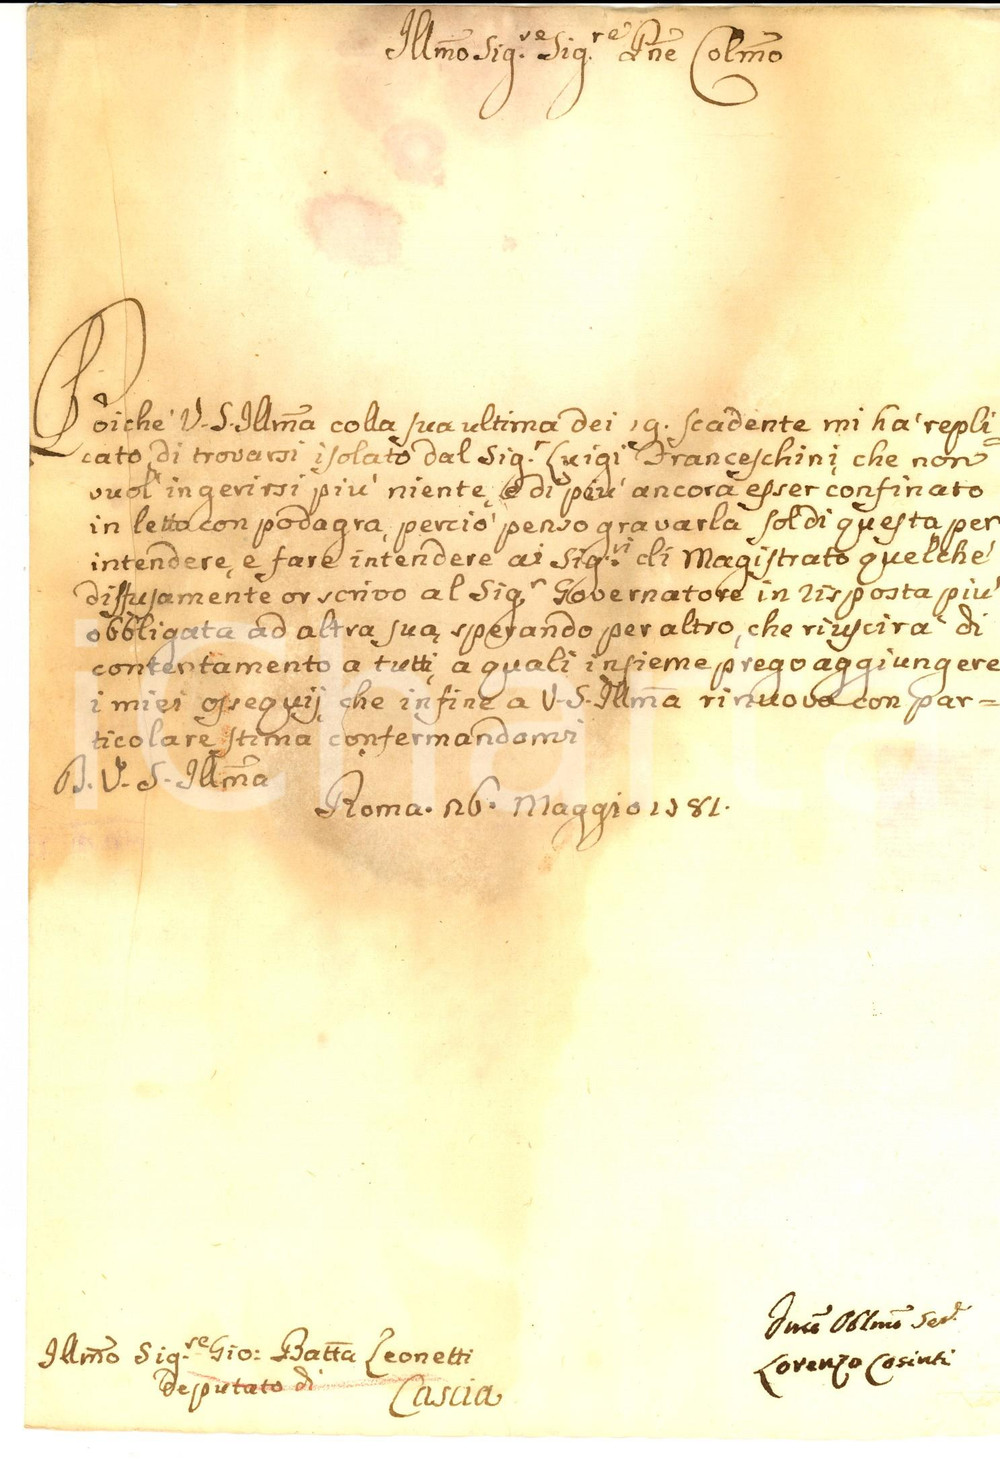 Illmo Sig.re Sig.re Pne Colmo
Poichè V. S. Illma colla sua ultima dei 19. scadente mi ha repli=
cato di trovarsi isolato dal Sig.r Luigi Franceschini, che non
vuol' ingerirsi più niente, e di più ancora esser confinato
in letto con podagra, perciò penso gravarla sol di questa per
intendere, e fare intendere ai Sig.ri di Magistrato quelchè
diffusamente or scrivo al Sig.r Governatore in risposta più
obbligata ad altra sua, sperando per altro, che riuscirà di
contentamento a tutti, a quali insieme prego aggiungere
i miei ossequij, che infine a V. S. Illma rinuovo con par=
ticolare stima confermandomi
D. V. S. Illma
Roma. 26. Maggio 1781.
Illmo Sig.re Gio: Batta Leonetti
Deputato di
Cascia
Dmo Oblmo Ser.
Lorenzo Cosinti
ichar